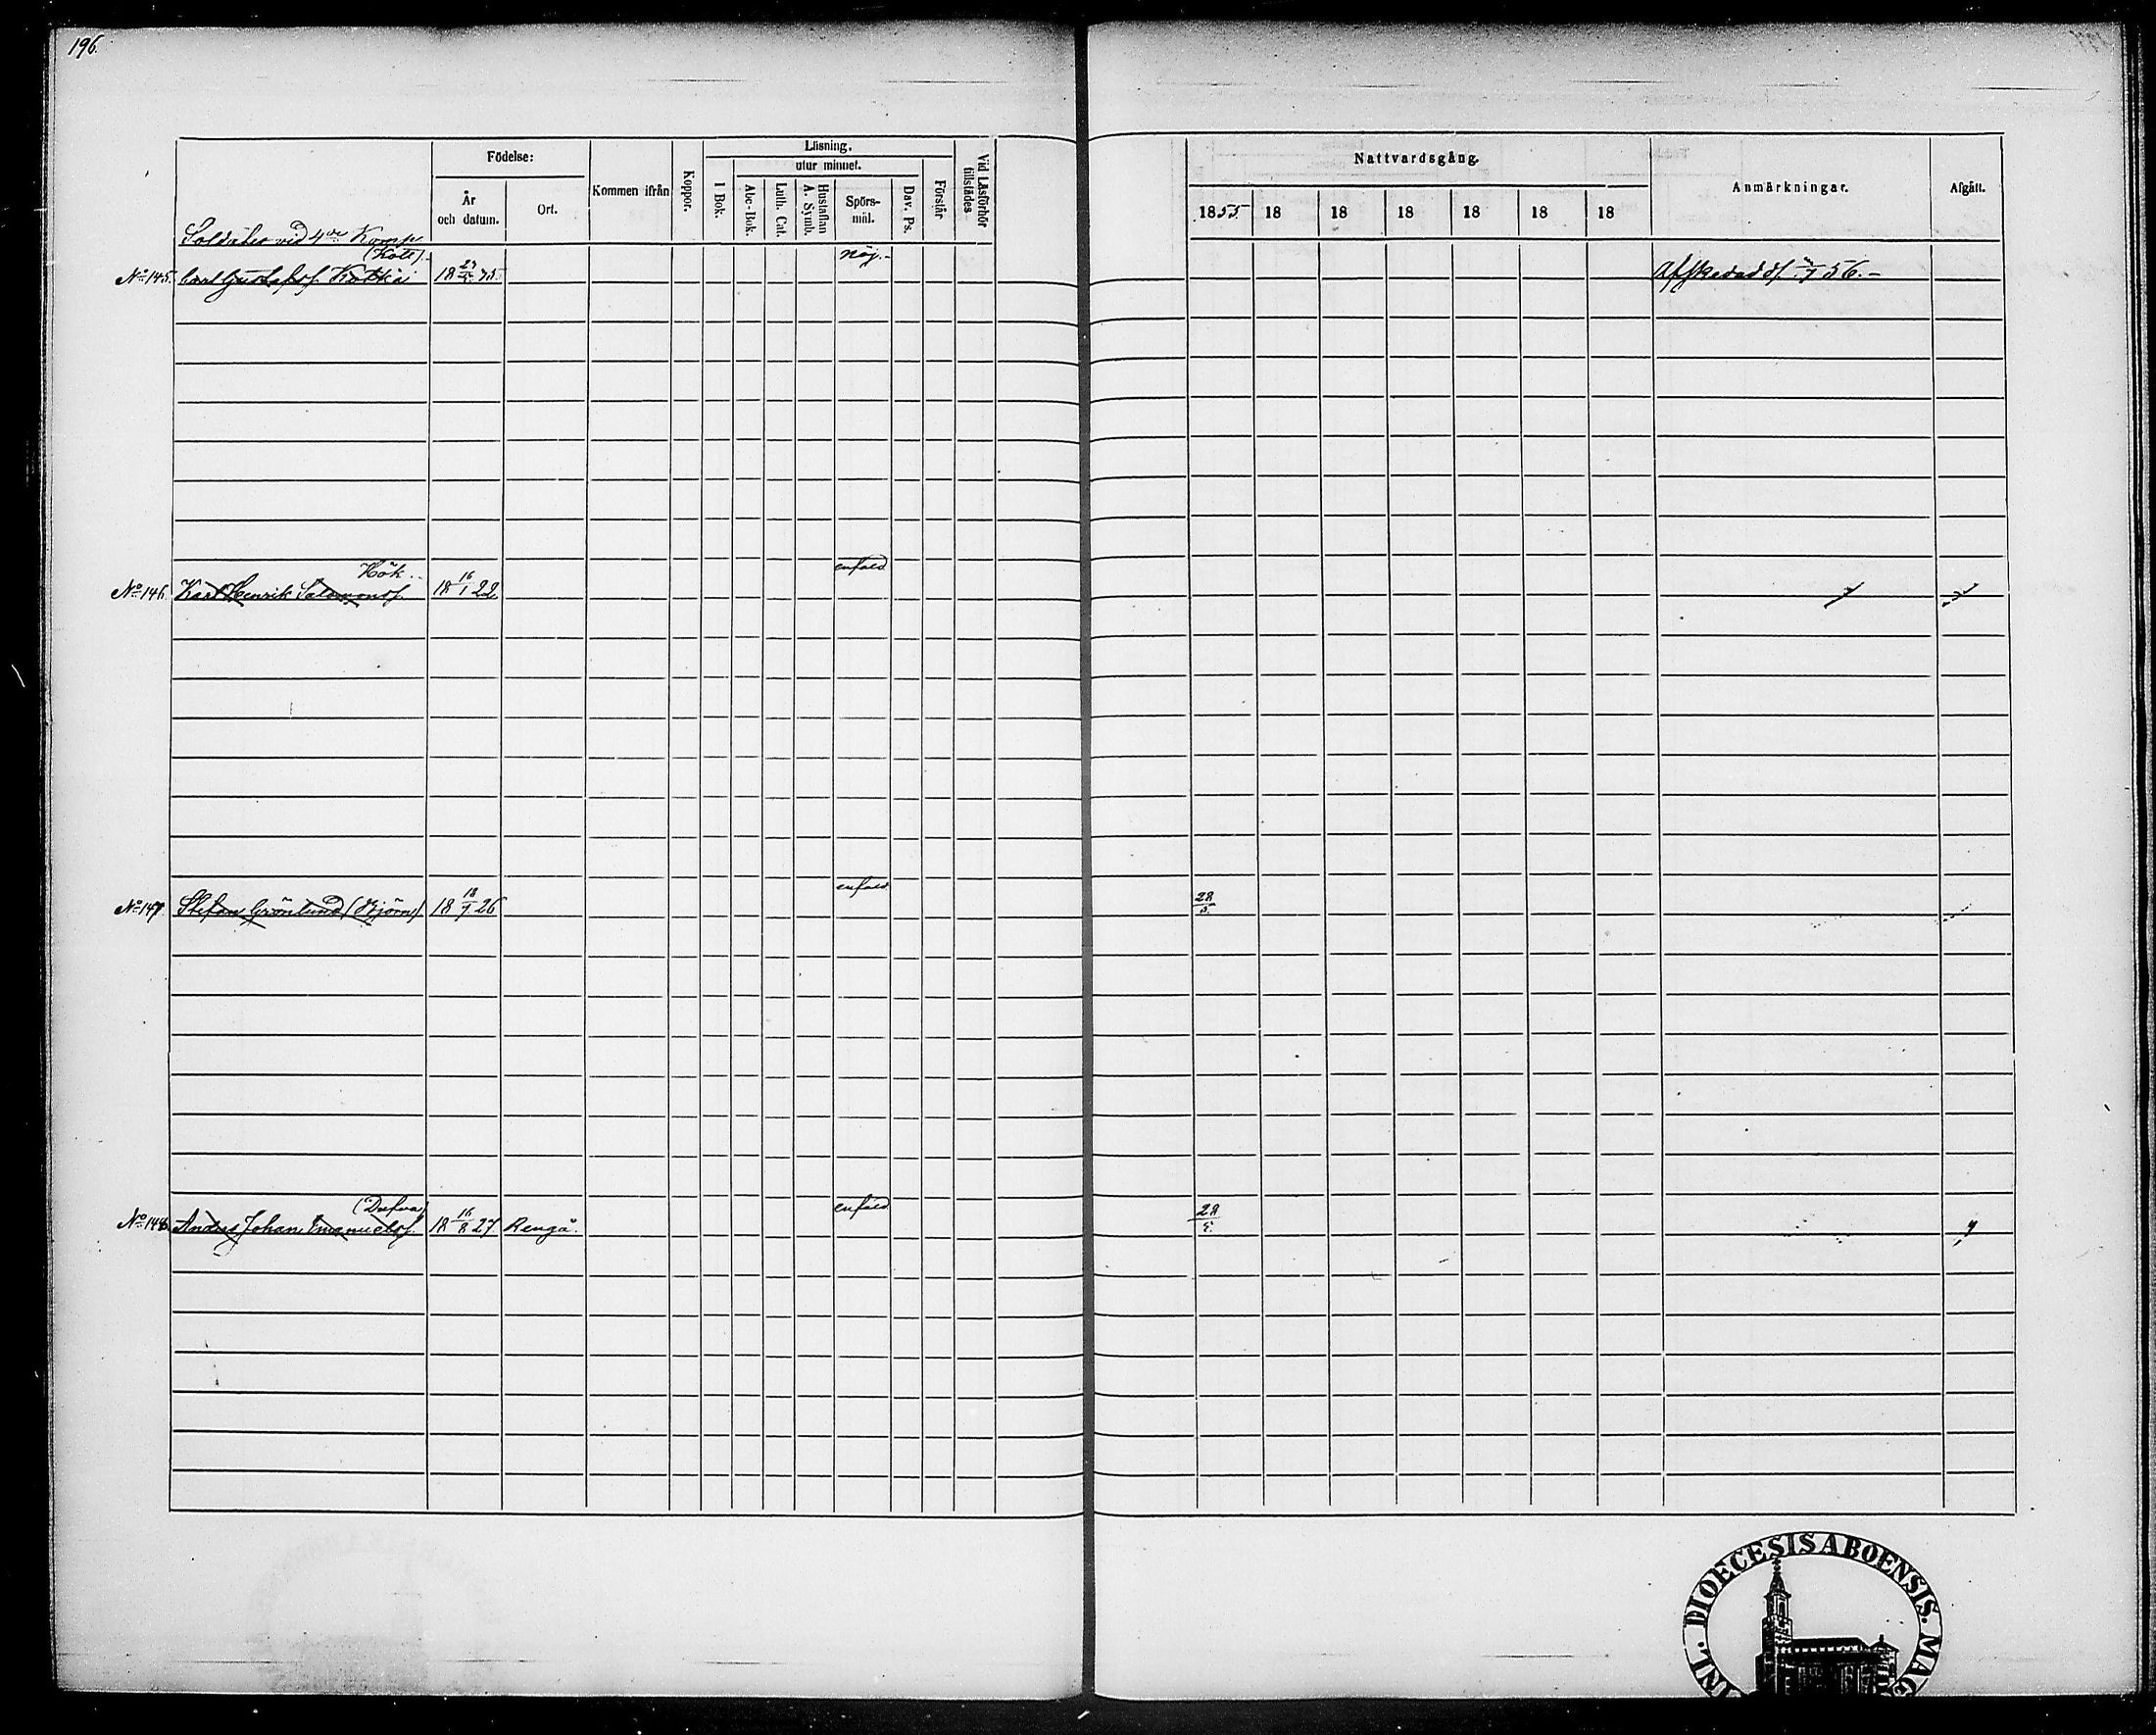 196.
Födelse:
Läsning.
utur minnet.
År och datum.
Ort.
Kommen ifrån
Koppor.
1 Bok.
Abc-Bok.
Luth. Cat.
Hustaflan A. Symb.
Spörs-mål.
Dav. Ps.
Förstår
Vid Läsförhör tillstädes
Nattvardsgång.
Anmärkningar.
Afgått.
1855 18 18 18 18 18 18
Soldater vid 4de Komp
nöj.-
No 145. Carl Gustafsf. Afskedad 56.-
Hök enfald
No 146 Karl Henrik Salomonsf. 18 16/1 22
enfald
No 147 Stefan Grönlund (Björn) 18 18/9 26 28/5.
(Dufva) enfald
No 148. Anders Johan Emanuelsf. 18 16/8 27 Rengå. 28/5.
INL. DIOECESIS ABOENSIS. MAG